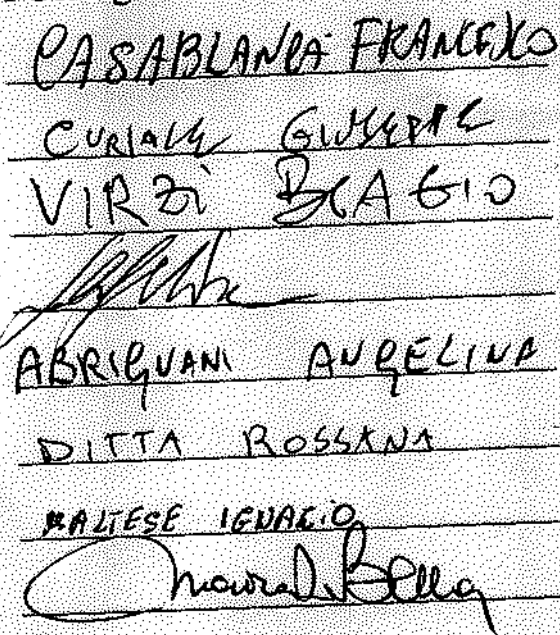 CASABLANCA FRANCESCO
CURIALE GIUSEPPE
VIRZÌ BIAGIO
ABRIGNANI ANGELINA
DITTA ROSSANA
MALTESE IGNAZIO